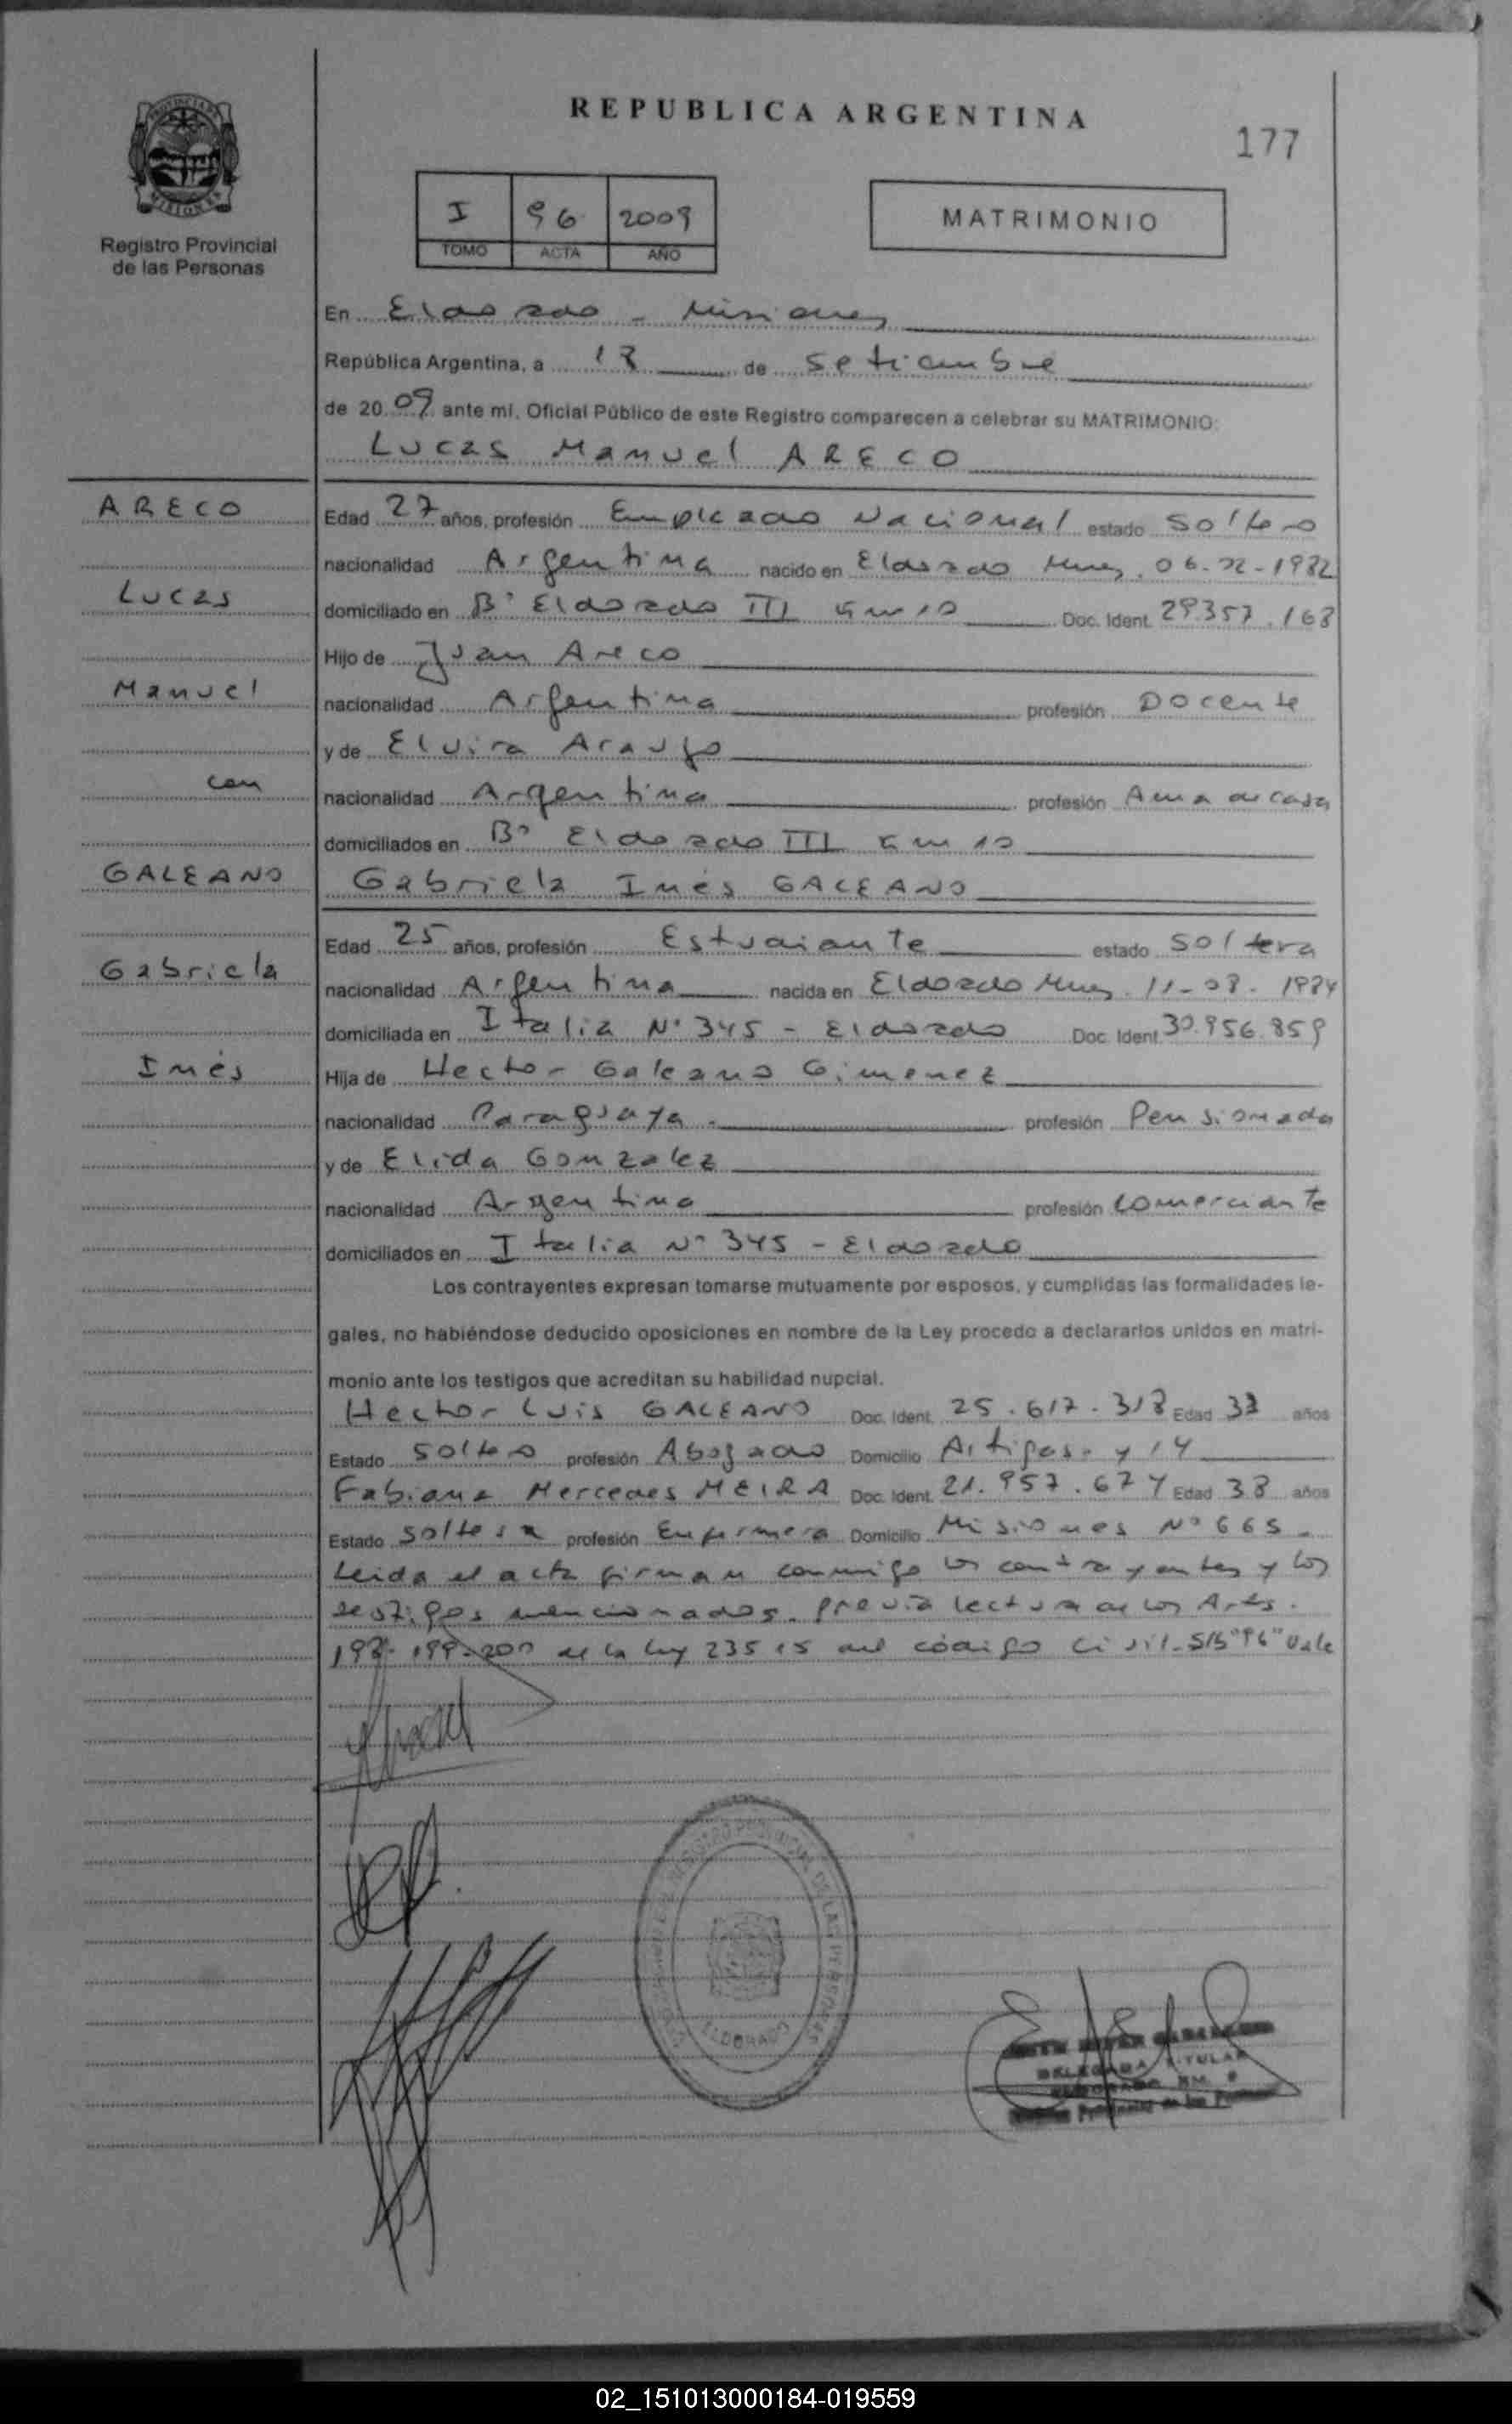 REPUBLICA ARGENTINA
177
PROVINCIA DE MISIONES
Registro Provincial
de las Personas
I 96 2009
TOMO ACTA AÑO
MATRIMONIO
En Eldorado - Misiones
República Argentina, a 18 de Setiembre
de 2009 ante mí, Oficial Público de este Registro comparecen a celebrar su MATRIMONIO:
Lucas Manuel ARECO
ARECO
Edad 27 años, profesión Empleado Nacional estado Soltero
nacionalidad Argentina nacido en Eldorado Mnes. 06-02-1982
Lucas
domiciliado en B° Eldorado III Km 10 Doc. Ident. 29.357.168
Hijo de Juan Areco
Manuel
nacionalidad Argentina profesión Docente
y de Elvira Araujo
con
nacionalidad Argentina profesión Ama de casa
domiciliados en B° Eldorado III Km 10
GALEANO
Gabriela Inés GALEANO
Edad 25 años, profesión Estudiante estado Soltera
Gabriela
nacionalidad Argentina nacida en Eldorado Mnes. 11-08-1984
domiciliada en Italia N° 345 - Eldorado Doc. Ident. 30.956.859
Inés
Hija de Hector Galeano Gimenez
nacionalidad Paraguaya - profesión Pensionado
y de Elida Gonzalez
nacionalidad Argentina profesión Comerciante
domiciliados en Italia N° 345 - Eldorado
Los contrayentes expresan tomarse mutuamente por esposos, y cumplidas las formalidades le-
gales, no habiéndose deducido oposiciones en nombre de la Ley procedo a declararlos unidos en matri-
monio ante los testigos que acreditan su habilidad nupcial.
Hector Luis GALEANO Doc. Ident. 25.617.318 Edad 33 años
Estado Soltero profesión Abogado Domicilio Artigas y 14
Fabiana Mercedes MEIRA Doc. Ident. 21.957.674 Edad 38 años
Estado Soltera profesión Enfermera Domicilio Misiones N° 665 -
Leida el acta firman conmigo los contrayentes y los
testigos mencionados. previa lectura de los Arts.
198-199-200 de la ley 23515 del código Civil - S/B "96" Vale
ELDORADO
DELEGADA TITULAR
02_151013000184-019559